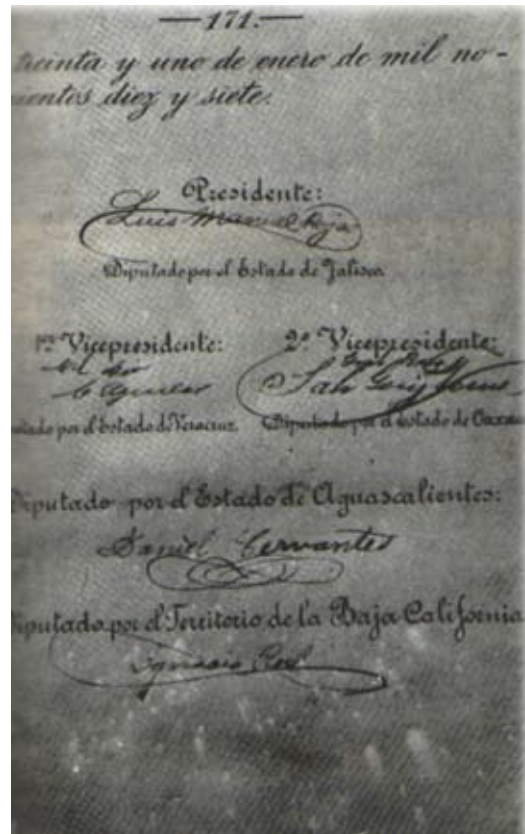 —171.—
treinta y uno de enero de mil no-
cientos diez y siete.
Presidente:
Luis Manuel Rojas
Diputado por el Estado de Jalisco
1er Vicepresidente: 2º Vicepresidente:
C Aguilar
Diputado por el Estado de Oaxaca
Diputado por el Estado de Aguascalientes:
Daniel Cervantes
Diputado por el Territorio de la Baja California
Ignacio Roel